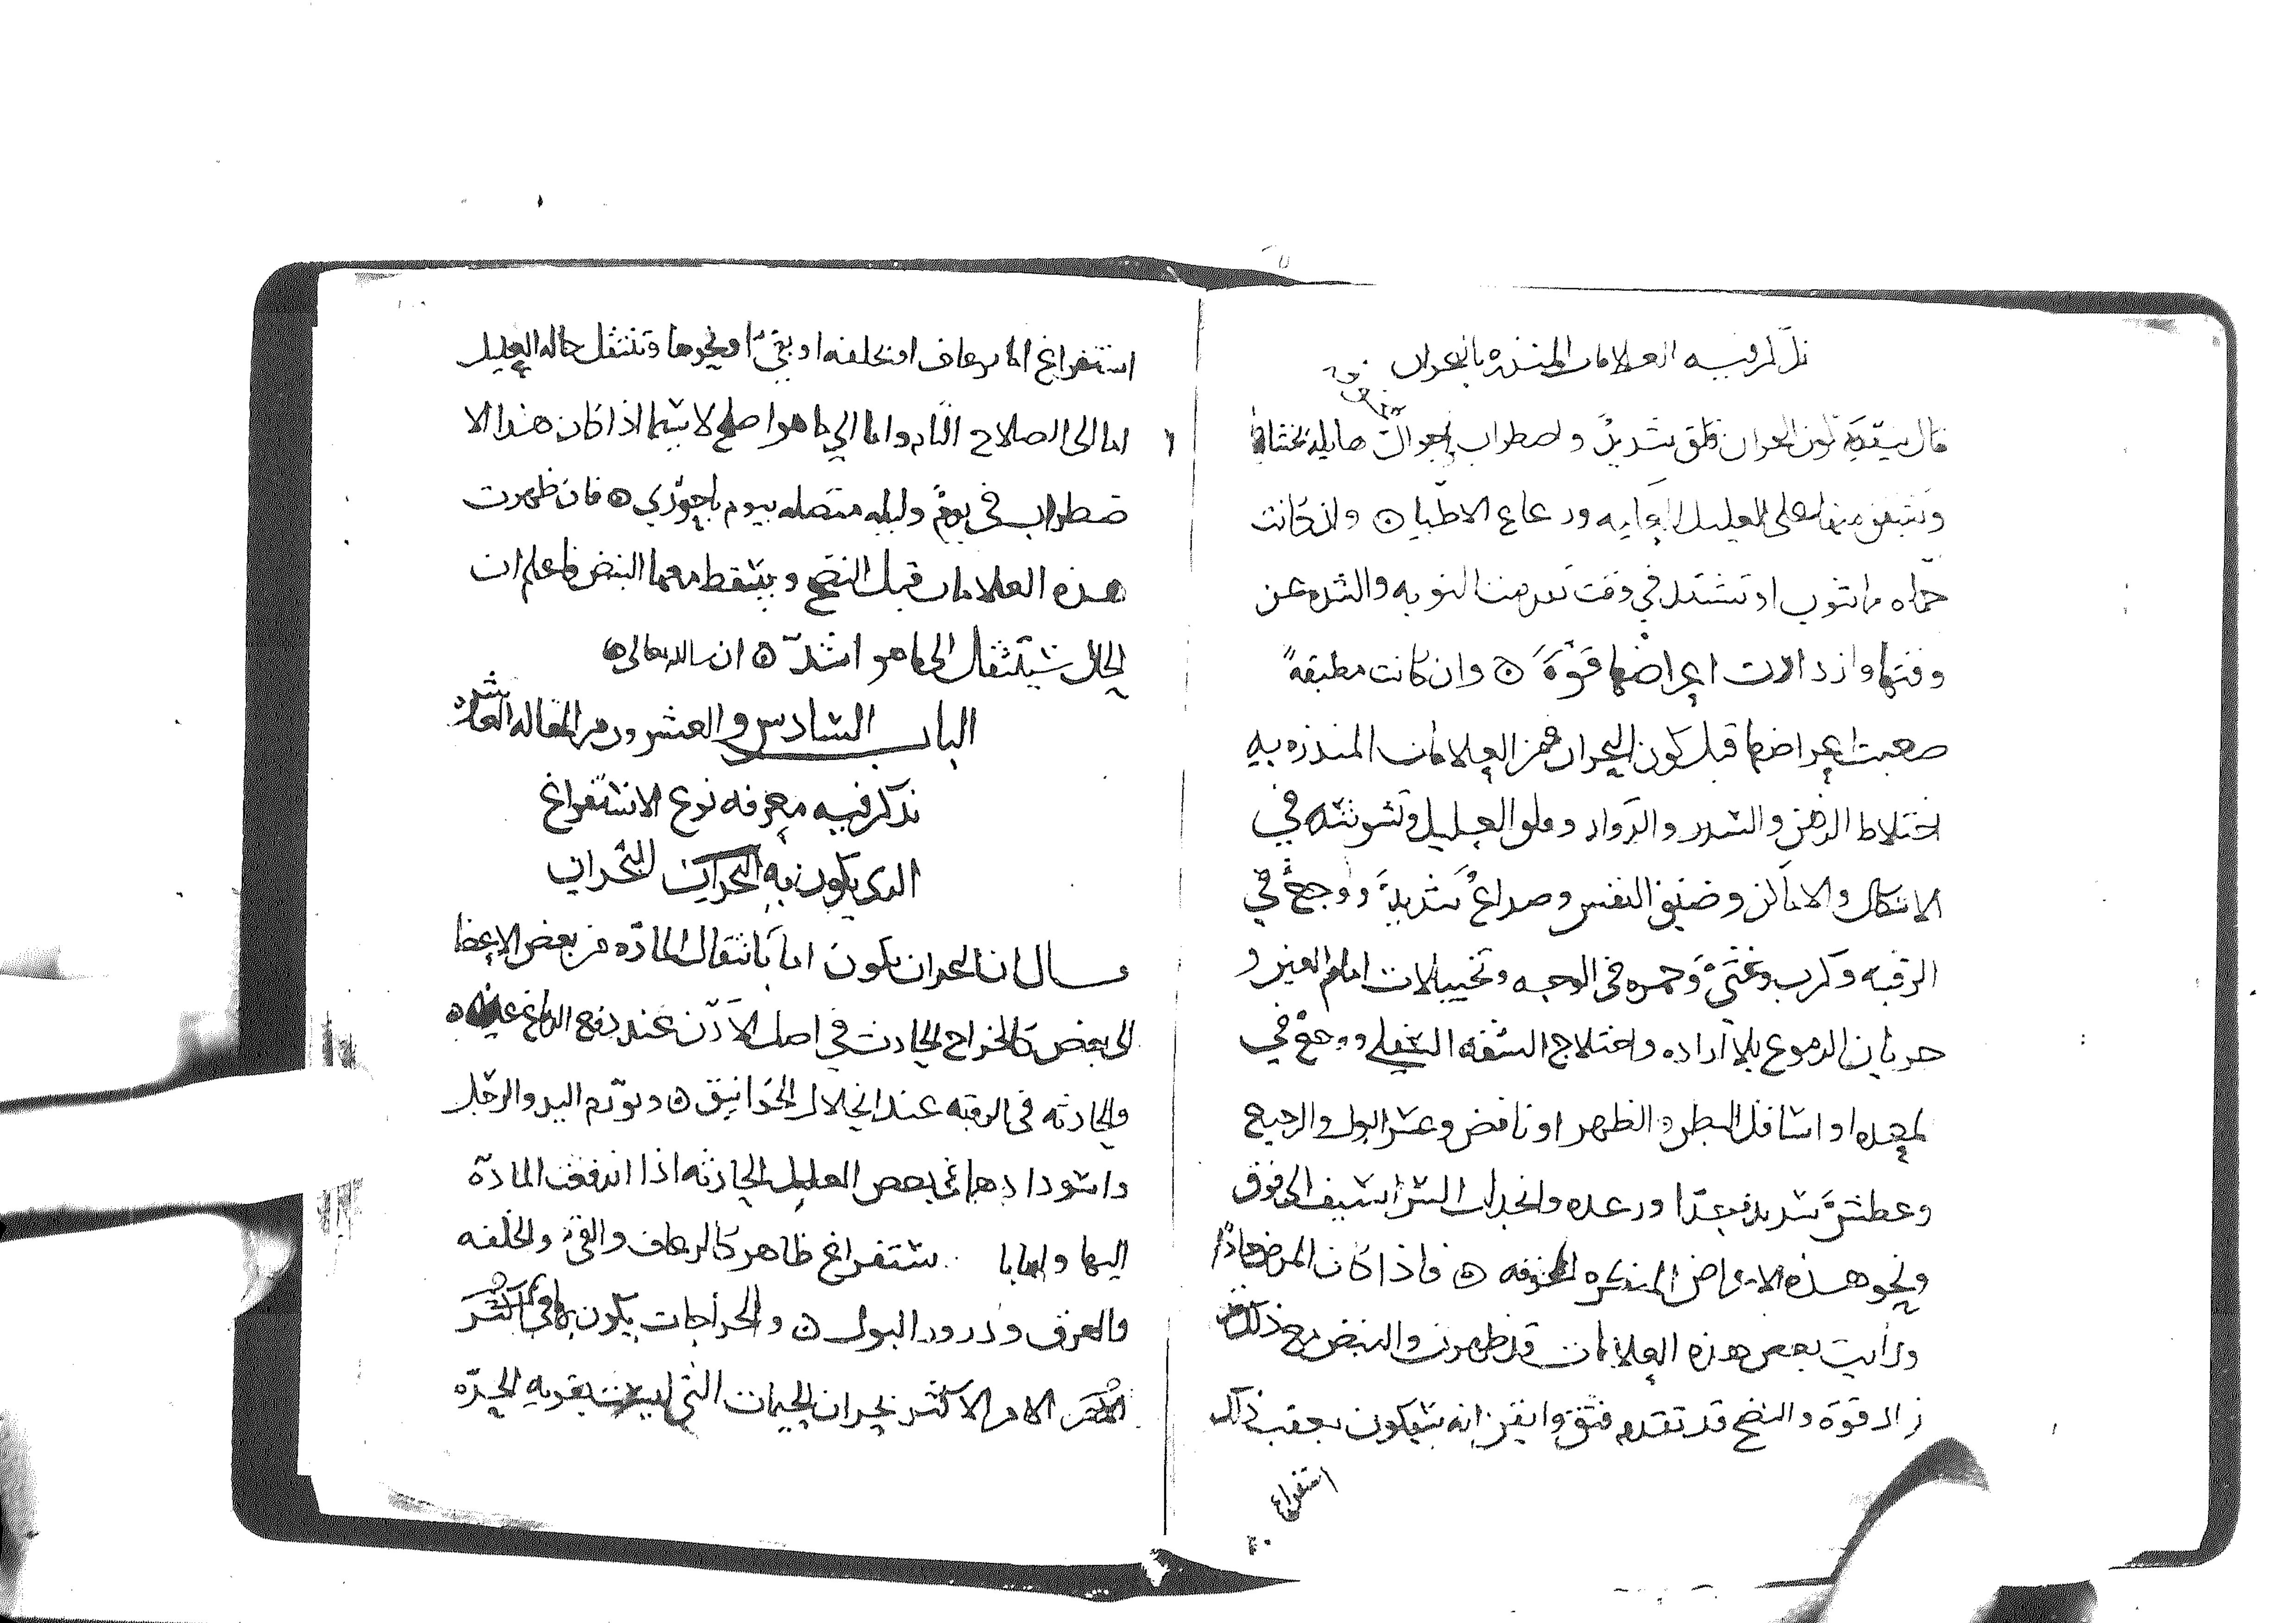 نذكر فيه العلامات المنذره بالبحران
قال يتقدم كون البحران قلق شديدٌ واضطراب واحوال هايله يختلف
ويشفق منها على العليل اقاربه ورعاع الاطبا ۞ وان كانت
حماه مما تنوب او تشتد في وقت تقدمت النوبه والشده عن
وقتها وازدادت اعراضها قوّةً ۞ وان كانت مطبقهً
صعبت اعراضها قبل كون البحران فمن العلامات المنذره به
اختلاط الذهن والسدر والدوار وقلق العليل وتشوشه في
الاشكال والاماكن وضيق النفس وصداعٌ شديدٌ ووجعٌ في
الرقبه وكرب وغثيٌ وحمره في الوجه وتخييلات امام العين و
جريان الدموع بلا اراده واختلاج الشفه السفلي ووجع في
المعده او اسافل البطن والظهر او نافض وعسر البول والرجيع
وعطش شديد جدا ورعده وانجذاب الشراسيف الى فوق
ونحو هذه الاعراض المنكره المخوفه ۞ فاذا كان المرض حادًا
ورأيت بعض هذه العلامات قد ظهرت والنبض مع ذلك
زاد قوة والنضج قد تقدم فثق وايقن انه سيكون بعقب ذلك
استفراغ
استفراغ اما برعاف او بخلفه او بقيٍ او نحوها وتنتقل حاله العليل
اما الى الصلاح التام واما الي ما هو اصلح لا سيما اذا كان هذا الا
ضطراب في يومٍ وليله متصله بيوم باحوري ۞ فان ظهرت
هذه العلامات قبل النضج ويسقط معها النبض فاعلم ان
الحال ستنتقل الى ما هو اشدّ ۞ ان شالله تعالى
الباب السادس والعشرون من المقاله العاشره
نذكر فيه معرفه نوع الاستفراغ
الذي يكون به البحران البحران
قال ان البحران يكون اما بانتقال المادّه من بعض الاعضا
الى بعض كالخراج الحادث في اصل الاذن عند دفع الدماغ عليه ۞
والحادثه في الرقبه عند انحلال الخوانيق ۞ وتورّم اليد والرجل
واسودادهما في بعض العليل الحادثه اذا اندفقت المادّة
اليها واما با ستفراغ ظاهر كالرعاف والقيء والخلفه
والعرق ودرور البول ۞ والخراجات يكون بها في اكثر
الامر الاكثر بحران الحميات التي ليست بقويه الحدّه